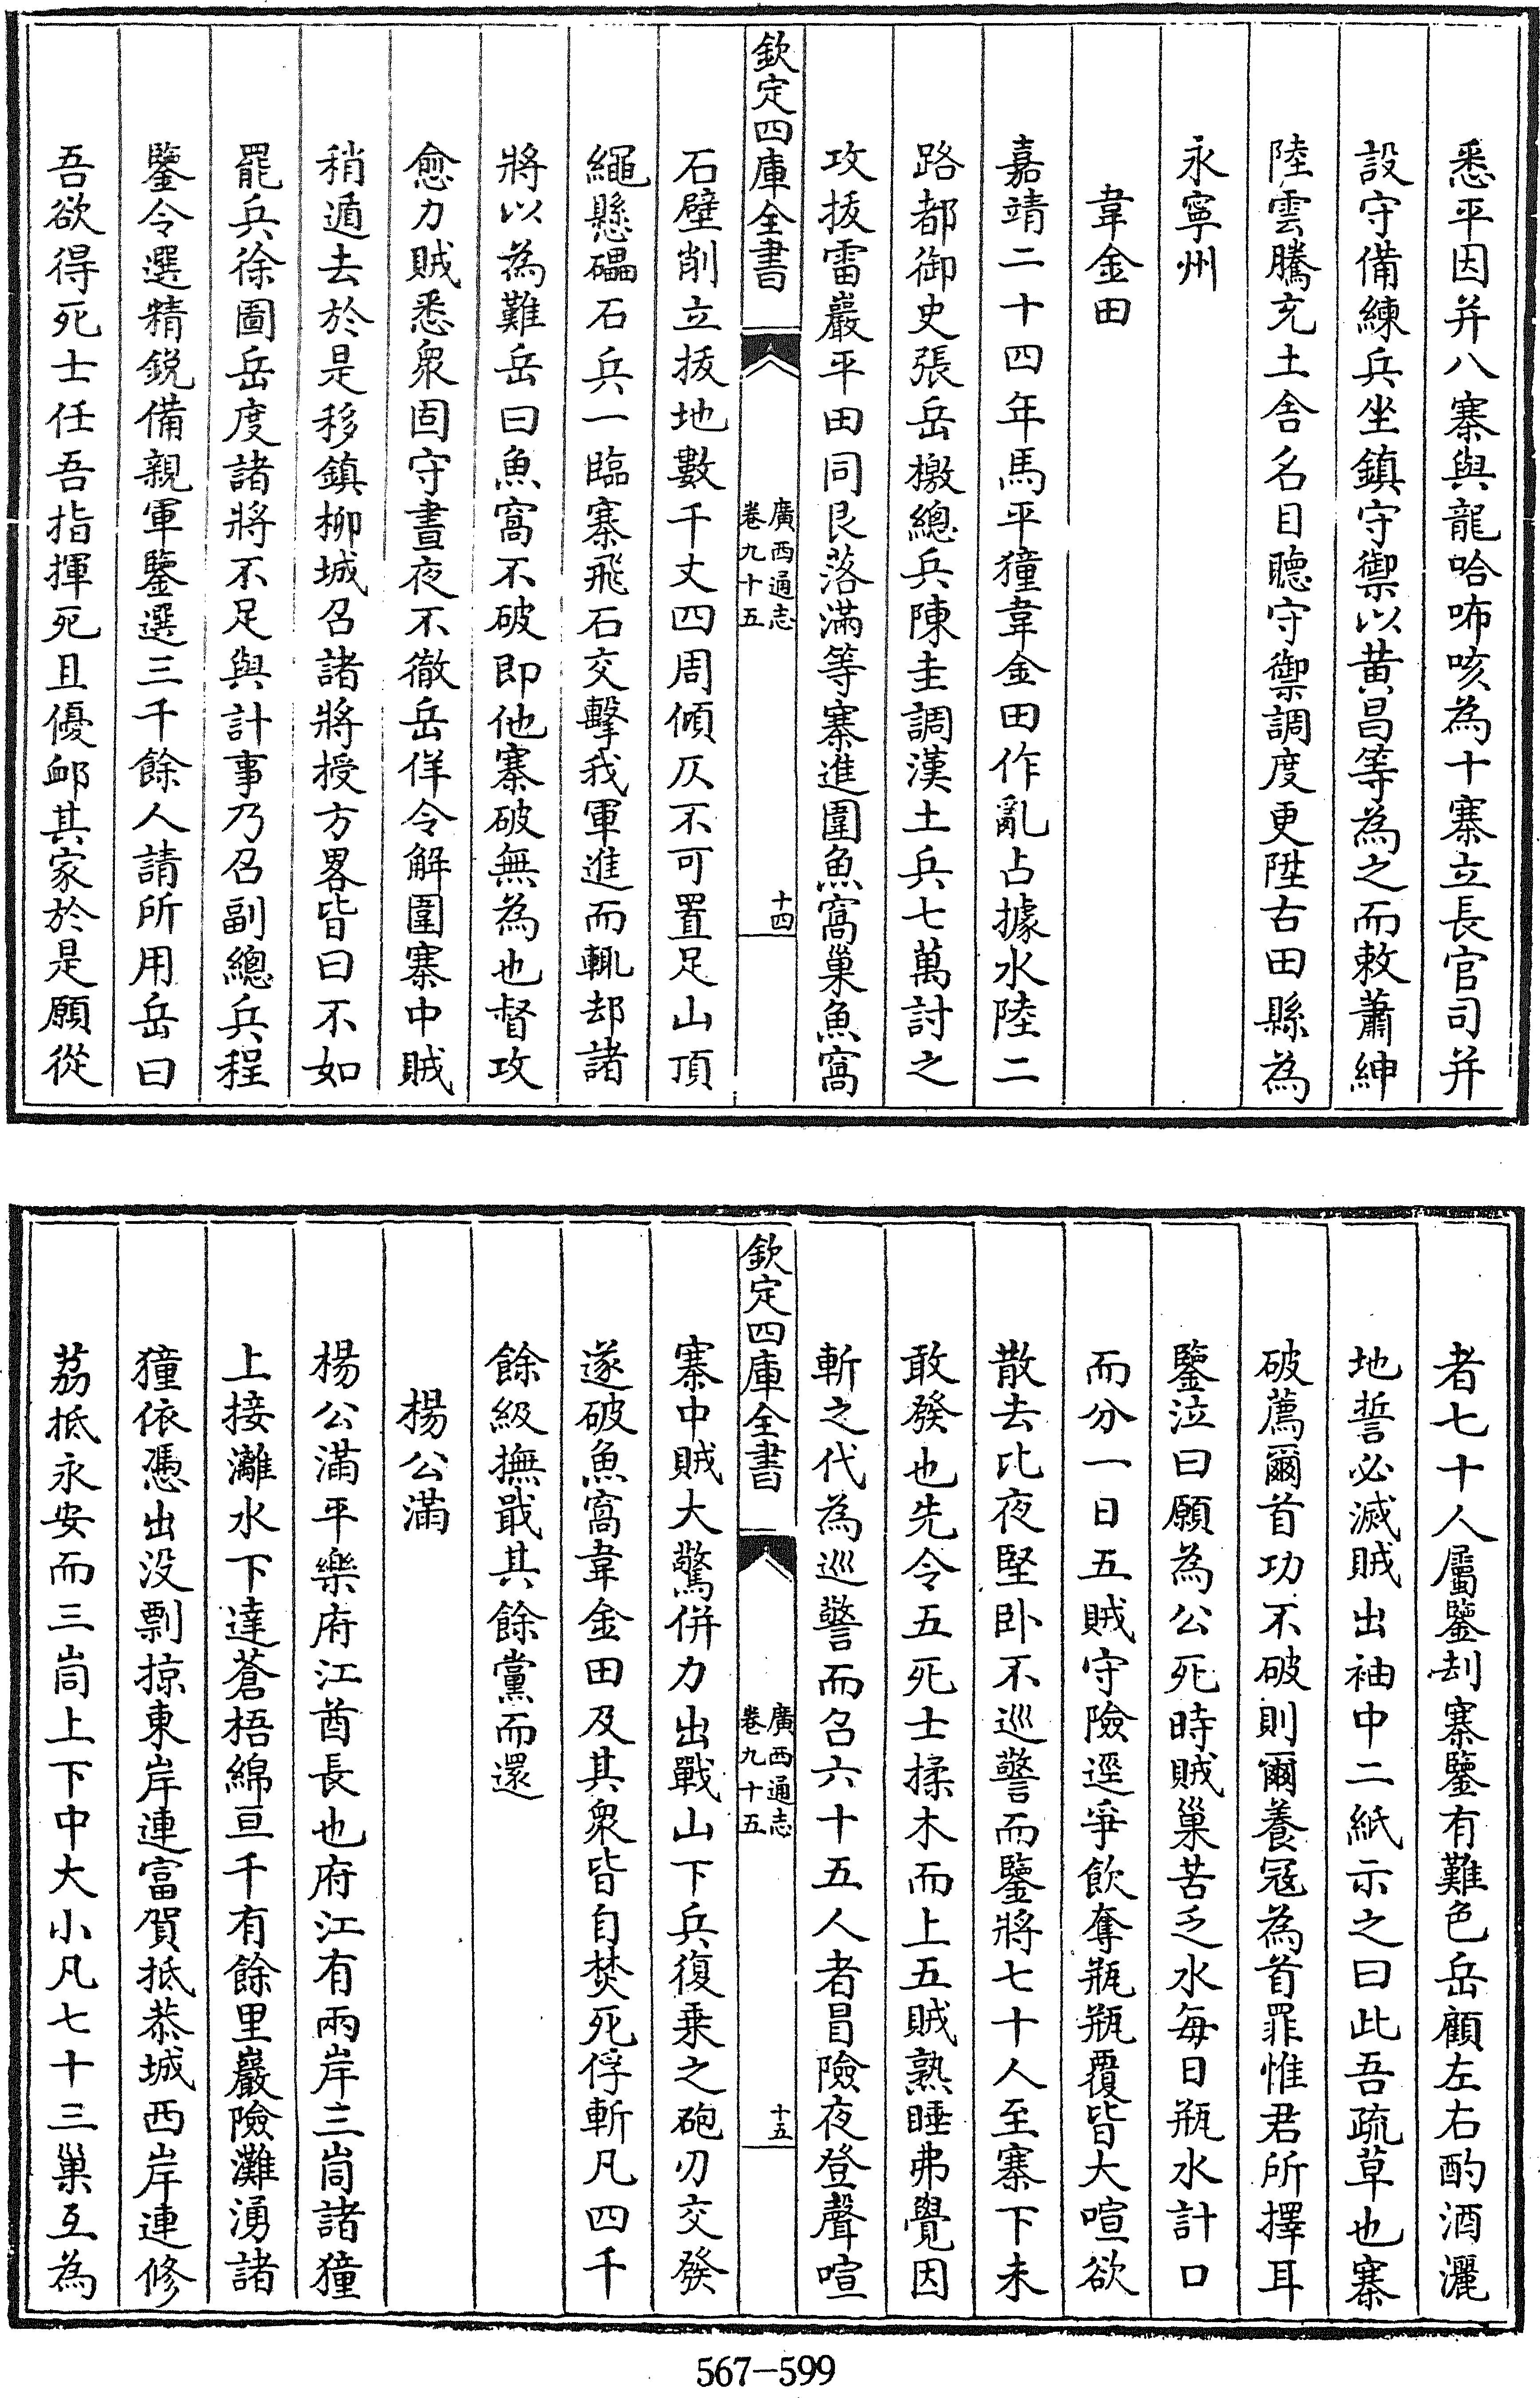 悉平因并八寨與龍哈咘咳為十寨立長官司并
設守備練兵坐鎮守禦以黃昌等為之而敕蕭紳
陸雲騰充土舍名目聽守禦調度更陞古田縣為
永寧州
韋金田
嘉靖二十四年馬平獞韋金田作亂占據水陸二
路都御史張岳檄總兵陳圭調漢土兵七萬討之
攻拔雷巖平田同艮落滿等寨進圍魚窩巢魚窩
欽定四庫全書
廣西通志
卷九十五
十四
石壁削立拔地數千丈四周傾仄不可置足山頂
繩懸礧石兵一臨寨飛石交擊我軍進而輒却諸
將以為難岳曰魚窩不破即他寨破無為也督攻
愈力賊悉衆固守晝夜不徹岳佯令解圍寨中賊
稍遁去於是移鎮柳城召諸將授方畧皆曰不如
罷兵徐圖岳度諸將不足與計事乃召副總兵程
鑒令選精銳備親軍鑒選三千餘人請所用岳曰
吾欲得死士任吾指揮死且優䘏其家於是願從
者七十人屬鑒刦寨鑒有難色岳顧左右酌酒灑
地誓必滅賊出袖中二紙示之曰此吾疏草也寨
破薦爾首功不破則爾養冦為首罪惟君所擇耳
鑒泣曰願為公死時賊巢苦乏水每日瓶水計口
而分一日五賊守險逕爭飲奪瓶瓶覆皆大喧欲
散去比夜堅卧不巡警而鑒將七十人至寨下未
敢發也先令五死士揉木而上五賊熟睡弗覺因
斬之代為巡警而召六十五人者冒險夜登聲喧
欽定四庫全書
廣西通志
卷九十五
十五
寨中賊大驚併力出戰山下兵復乗之砲刃交發
遂破魚窩韋金田及其衆皆自焚死俘斬凡四千
餘級撫戢其餘黨而還
楊公滿
楊公滿平樂府江酋長也府江有兩岸三峝諸獞
上接灕水下達蒼梧綿亘千有餘里巖險灘湧諸
獞依憑出没剽掠東岸連富賀抵恭城西岸連修
荔抵永安而三峝上下中大小凡七十三巢互為
567-599